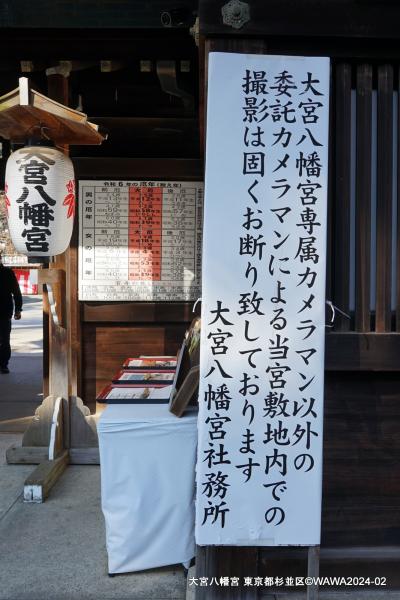 大宮八幡宮専属カメラマン以外の
委託カメラマンによる当宮敷地内での
撮影は固くお断り致しております
大宮八幡宮社務所
大宮八幡宮
令和6年の厄年(数え年)
男の厄年
女の厄年
前厄
大厄
後厄
大宮八幡宮 東京都杉並区©WAWA2024-02